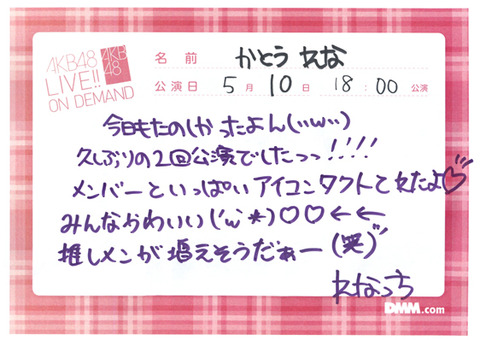 AKB48
LIVE!!
ON DEMAND
AKB
48
名前 かとう れな
公演日 5月 10日 18:00 公演
今日もたのしかったよん(ˊˊωˋˋ)
久しぶりの2回公演でしたっっ!!!!
メンバーといっぱいアイコンタクトとれたよ♡
みんなかわいい(*ˊωˋ*)♡♡←←
推しメンが増えそうだぁー(笑)
れなっち
DMM.com